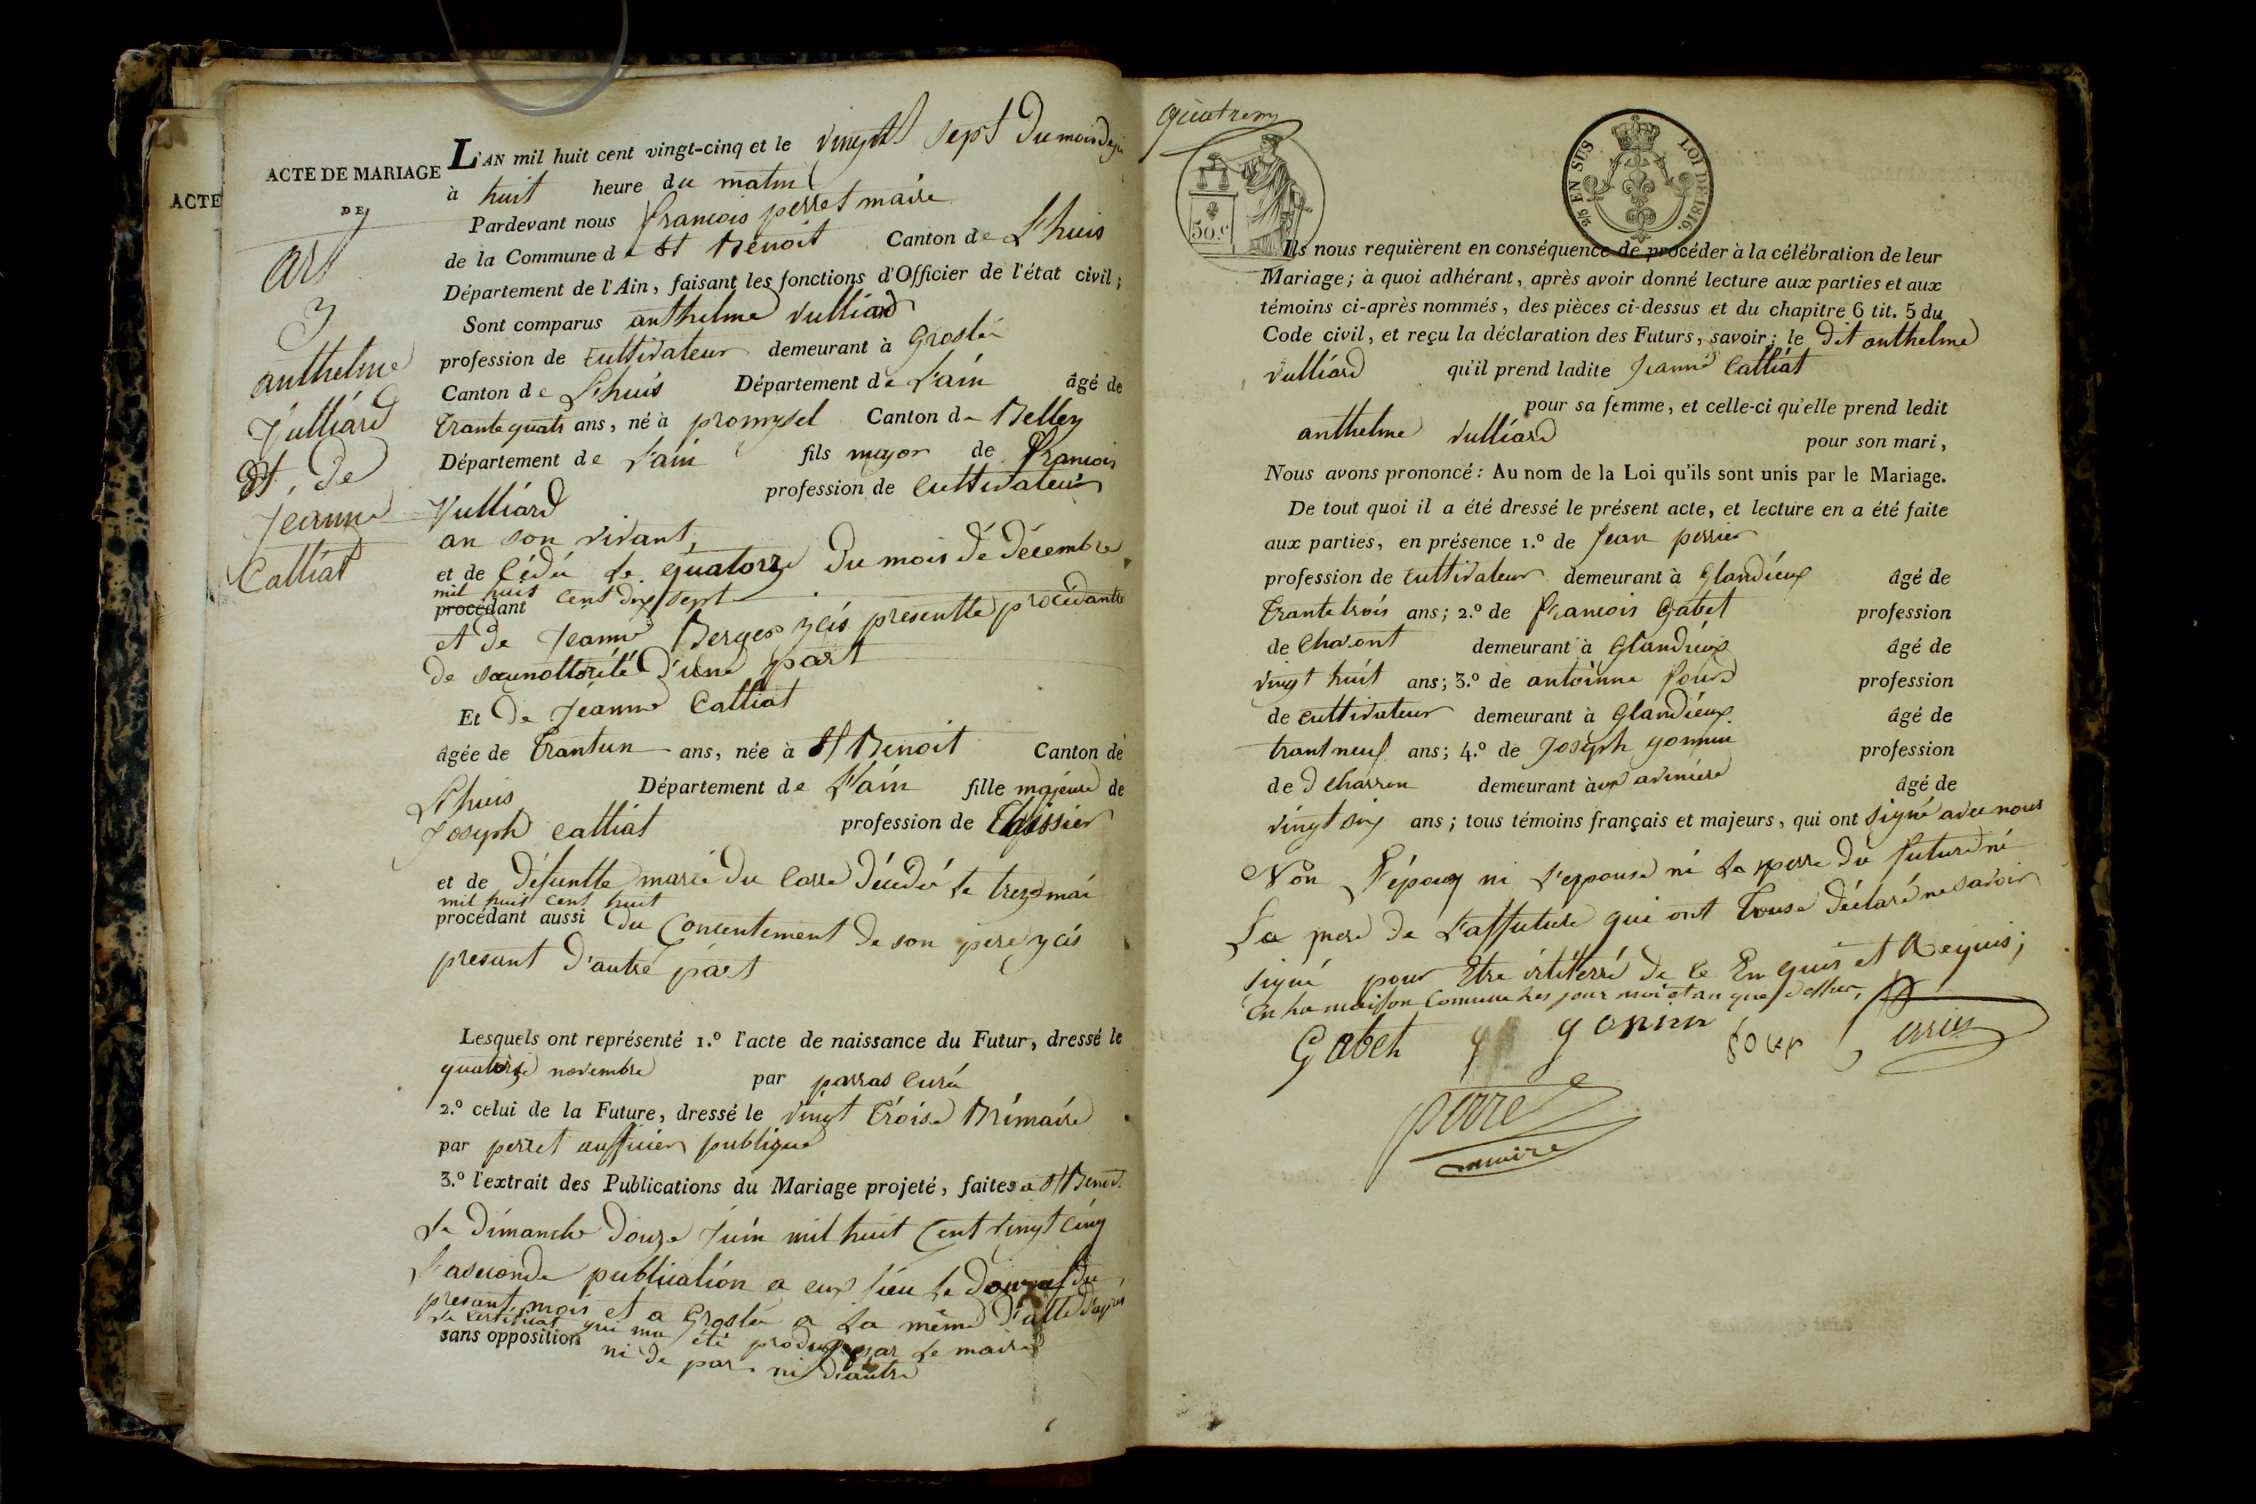 ACTE
ACTE DE MARIAGE
DE
art
3
anthelme
Vulliard
Et, de
Jeanne
Calliat
L'AN mil huit cent vingt-cinq et le vingt sept du mois de
à huit heure du matin
Pardevant nous francois perret maire
de la Commune de St Benoit Canton de L'huis
Département de l'Ain, faisant les fonctions d'Officier de l'état civil;
Sont comparus anthelme vulliard
profession de Cultivateur demeurant à Groslée
Canton de L'huis Département de L'ain âgé de
Trante quatr ans, né à Canton de Belley
Département de L'ain fils major de francois
Vulliard profession de Cultivateur
an son vivant,
et de Cédé le quatorze du mois de décembre
mil huis cent dix sept
procédant
et de Jeanne Berger ycis presentte procédante
de d'une part
Et de Jeanne Calliat
âgée de Trantun ans, née à St Benoit Canton de
L'huis Département de L'ain fille majeure de
Joseph calliat profession de
et de défuntte marie du Carre décédé le treze mai
mil huit cent huit
procédant aussi du Consentement de son pere ycis
presant d'autre part
Lesquels ont représenté 1.º l'acte de naissance du Futur, dressé le
quatorze novembre par parras Curé
2.º celui de la Future, dressé le vingt Troise Brimaire
par perret aufficier publique
3.º l'extrait des Publications du Mariage projeté, faites a St Benoit
le dimanche douze Juin mil huit Cent vingt cinq
L'aseconde publication a eux lieu le du
presant mois et a Groslée a La même d'atte d'apres
le certificat qui ma été produit par le maire
sans opposition ni de par ni d'autre
50.c
2/5 EN SUS LOI DE 1816.
Ils nous requièrent en conséquence de procéder à la célébration de leur
Mariage; à quoi adhérant, après avoir donné lecture aux parties et aux
témoins ci-après nommés, des pièces ci-dessus et du chapitre 6 tit. 5 du
Code civil, et reçu la déclaration des Futurs, savoir; le dit anthelme
vulliard qu'il prend ladite Jeanne Calliat
pour sa femme, et celle-ci qu'elle prend ledit
anthelme vulliard pour son mari,
Nous avons prononcé: Au nom de la Loi qu'ils sont unis par le Mariage.
De tout quoi il a été dressé le présent acte, et lecture en a été faite
aux parties, en présence 1.º de Jean perrier
profession de Cultivateur demeurant à Glandieux âgé de
Trante trois ans; 2.º de francois Gabet profession
de demeurant à Glandieux âgé de
vingt huit ans; 3.º de antoinne four profession
de cultivateur demeurant à Glandieux âgé de
trant neuf ans; 4.º de Joseph gonnin profession
de demeurant à aviniere âgé de
vingt six ans; tous témoins français et majeurs, qui ont signé avec nous
Non L'époux ni L'epouse ni Le perre du future ni
La mere de L'affuture qui ont Touse déclaré ne savoir
signé pour Etre ilitérré de Ce Enquis et Requis;
En La maison Commune Les jour moi et an que dessus,
Gabet gonin four
perret
maire